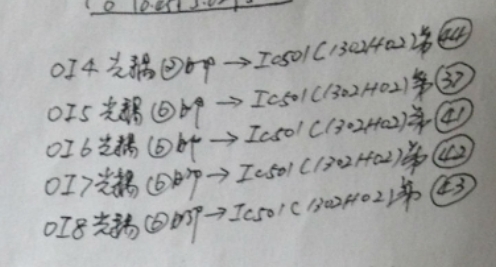 OI4光耦⑥脚→IC501(1302H02)第(44)
OI5光耦⑥脚→IC501(1302H02)第(37)
OI6光耦⑥脚→IC501(1302H02)第(41)
OI7光耦⑥脚→IC501(1302H02)第(42)
OI8光耦⑥脚→IC501(1302H02)第(43)